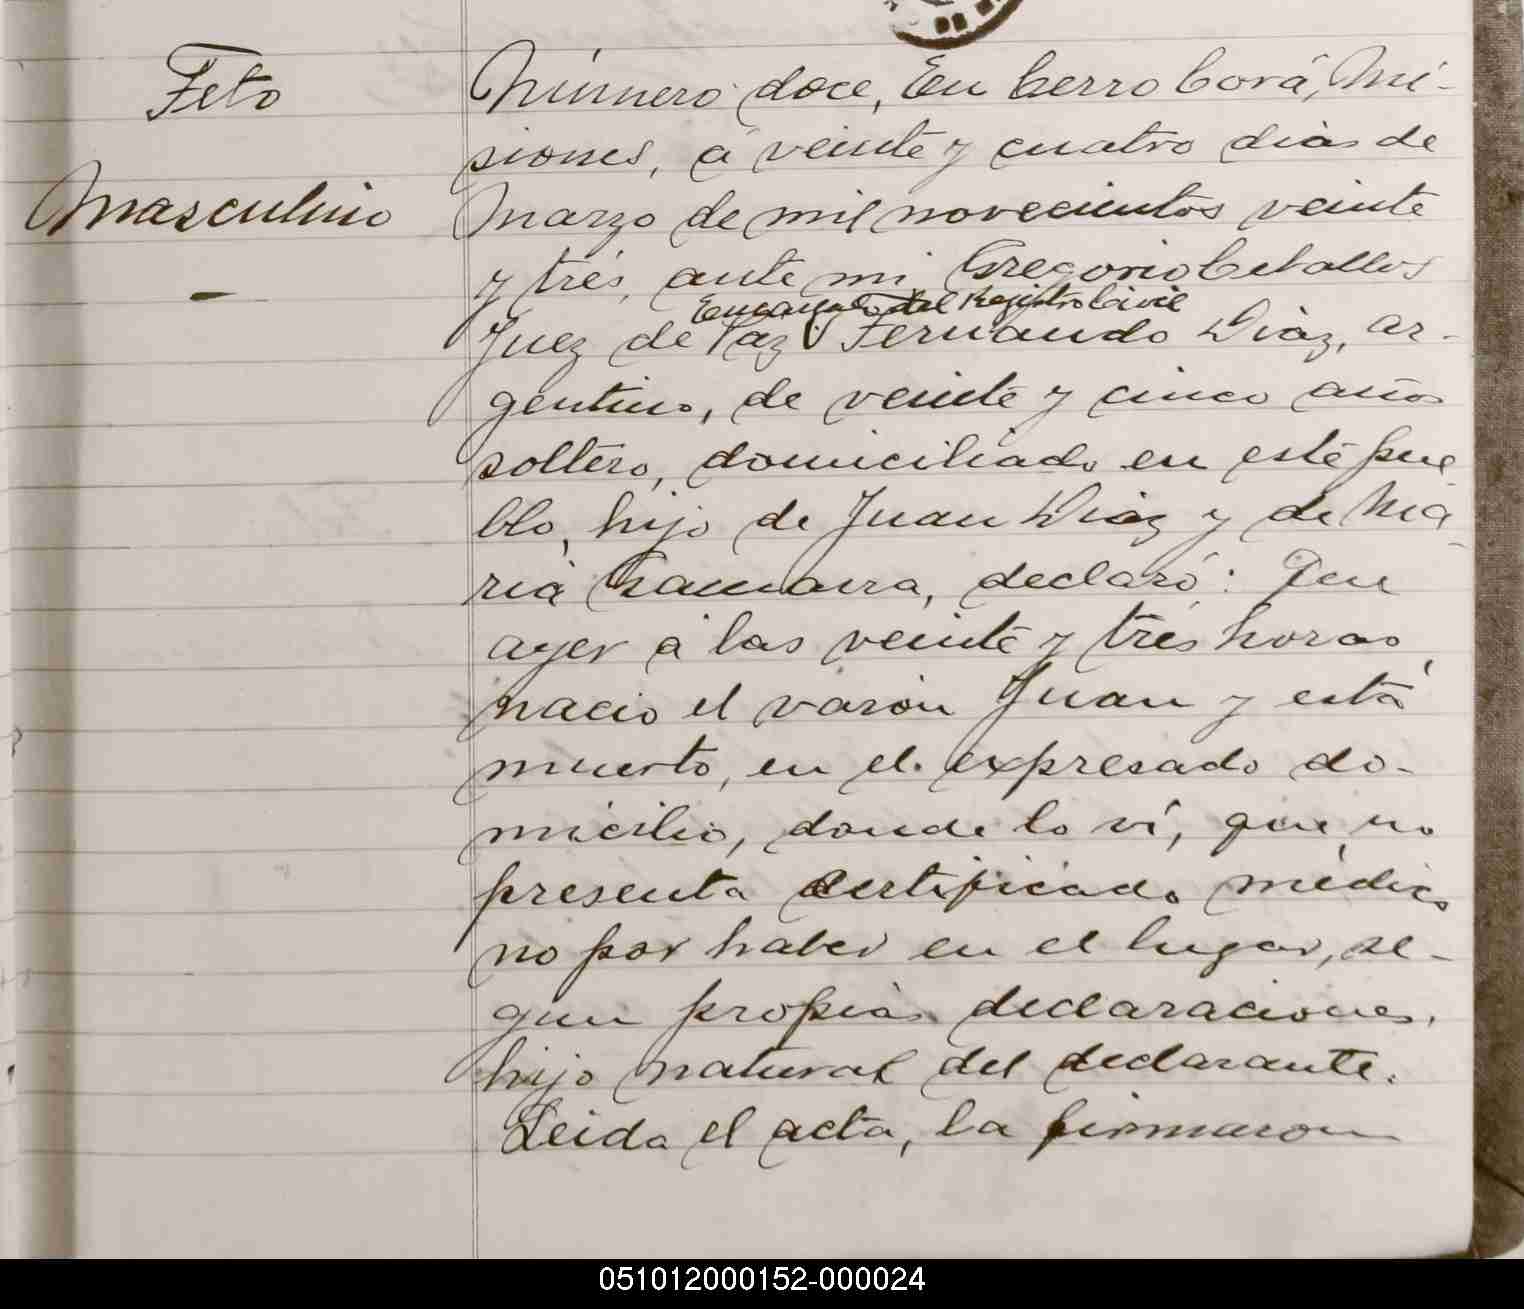 Feto
Masculino
Número doce, En Cerro Corá, Mi-
siones, á veinte y cuatro dias de
Marzo de mil novecientos veinte
y tres, ante mi Gregorio Ceballos
Encargado del Registro Civil
Juez de Paz Fernando Diaz, ar-
gentino, de veinte y cinco años
soltero, domiciliado en este pue
blo, hijo de Juan Diaz y de Ma-
ria Gamarra, declaró: Que
ayer á las veinte y tres horas,
nacio el varón Juan y está
muerto, en el expresado do-
micilio, donde lo ví, que no
presenta certificado médico
no por haber en el lugar, se-
gun propias declaraciones,
hijo natural del declarante.
Leida el acta, la firmaron
051012000152-000024